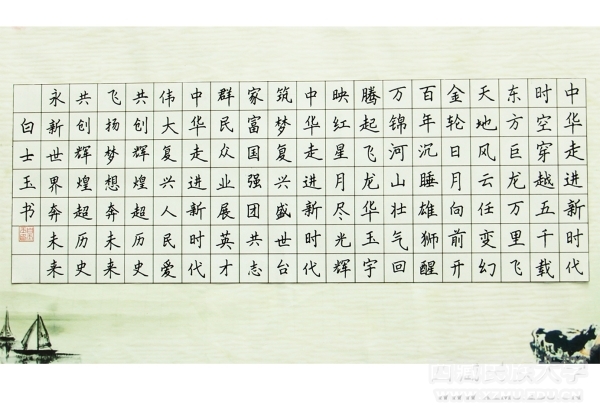 中华走进新时代
时空穿越五千载
东方巨龙万里飞
天地风云任变幻
金轮日月向前开
百年沉睡雄狮醒
万锦河山壮气回
腾起飞龙华玉宇
映红星月尽光辉
中华走进新时代
筑梦复兴盛世台
家富国强团共志
群民众业展英才
中华走进新时代
伟大复兴人民爱
共创辉煌超历史
飞扬梦想奔未来
共创辉煌超历史
永新世界奔未来
白士玉书